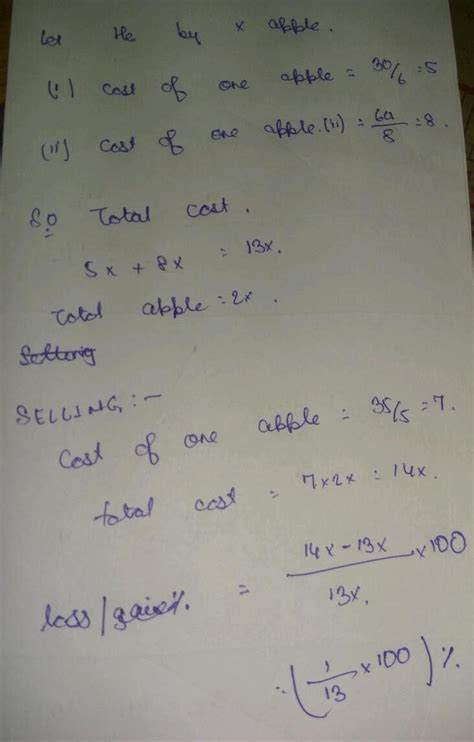 Let He by x apple.
(i) cost of one apple = 30/6 = 5
(ii) cost of one apple.(ii) = 64/8 = 8.
So Total cost.
5x + 8x = 13x.
Total apple = 2x.
Selling
SELLING :-
Cost of one apple = 35/5 = 7.
total cost = 7x2x = 14x.
loss/gain%. = 14x - 13x / 13x. x 100
= (1/13 x 100) %.